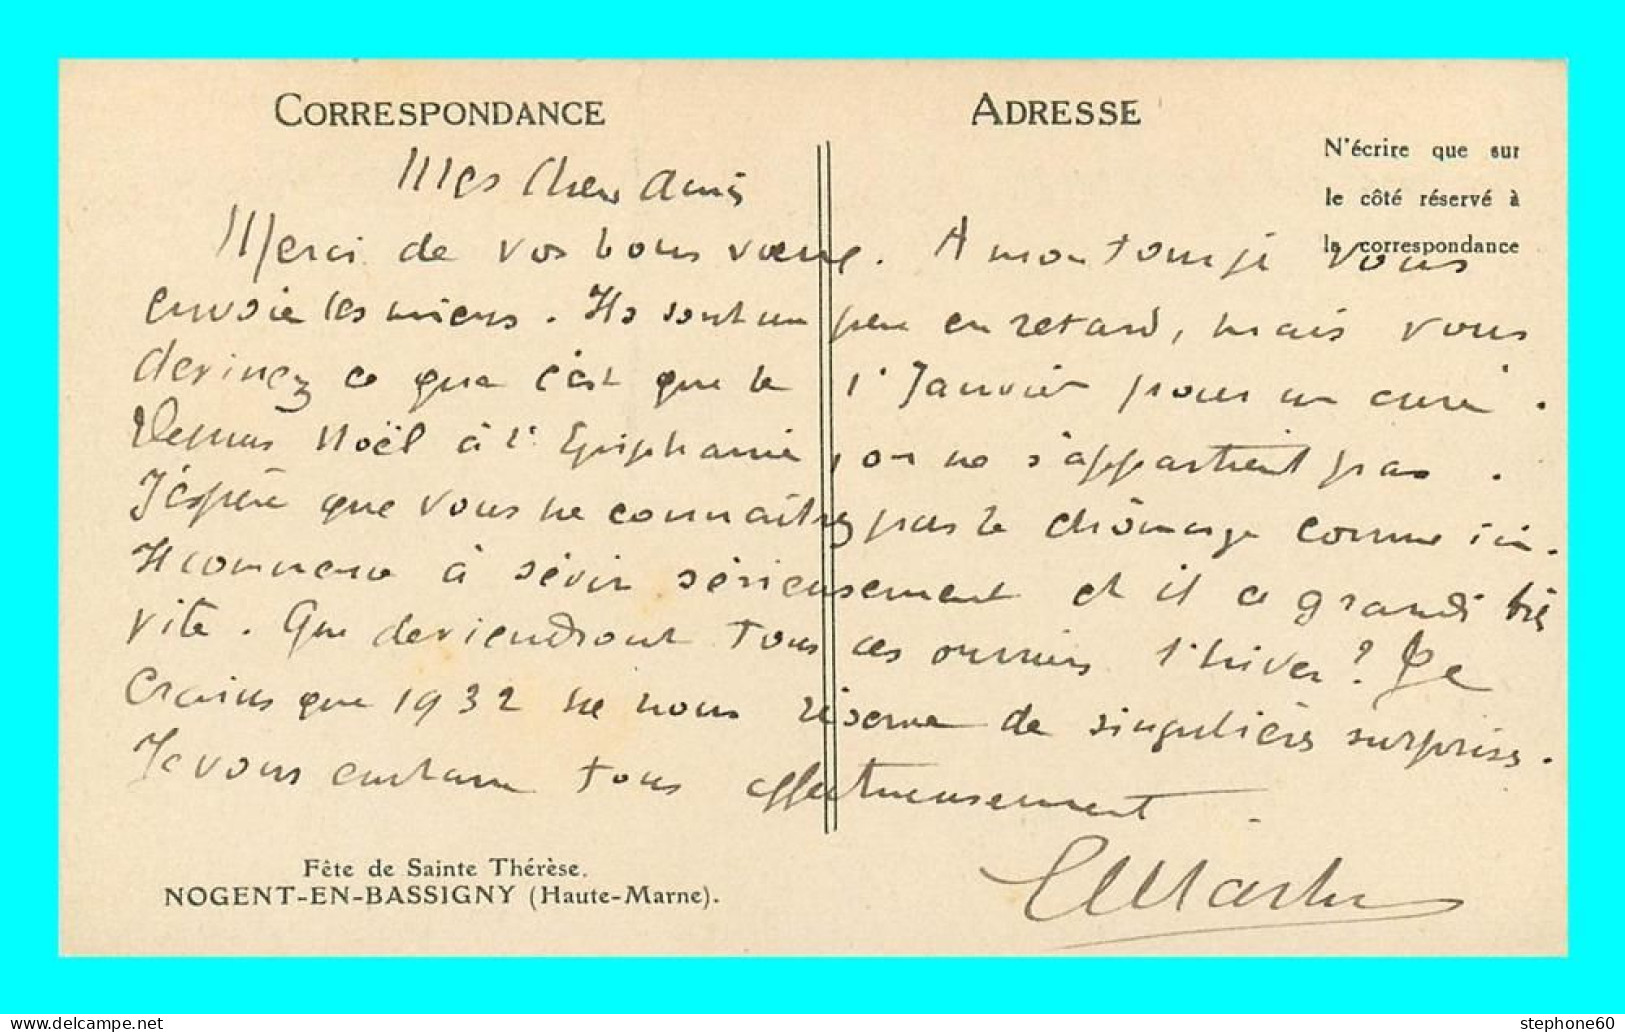 CORRESPONDANCE
ADRESSE
N'écrire que sur
le côté réservé à
la correspondance
Mes chers amis
Merci de vos bons vœux. A mon tour je vous
envoie les miens. Ils sont un peu en retard, mais vous
devinez ce que c'est que le 1r Janvier pour un curé.
Depuis Noël à l'Epiphanie, on ne s'appartient pas.
J'espère que vous ne connaîtrez pas le chômage comme ici.
Il commence à sévir sérieusement et il a grandi très
vite. Que deviendront tous ces ouvriers l'hiver? Je
crains que 1932 ne nous réserve de singulières surprises.
Je vous embrasse tous affectueusement.
Fête de Sainte Thérèse.
NOGENT-EN-BASSIGNY (Haute-Marne).
stephone60